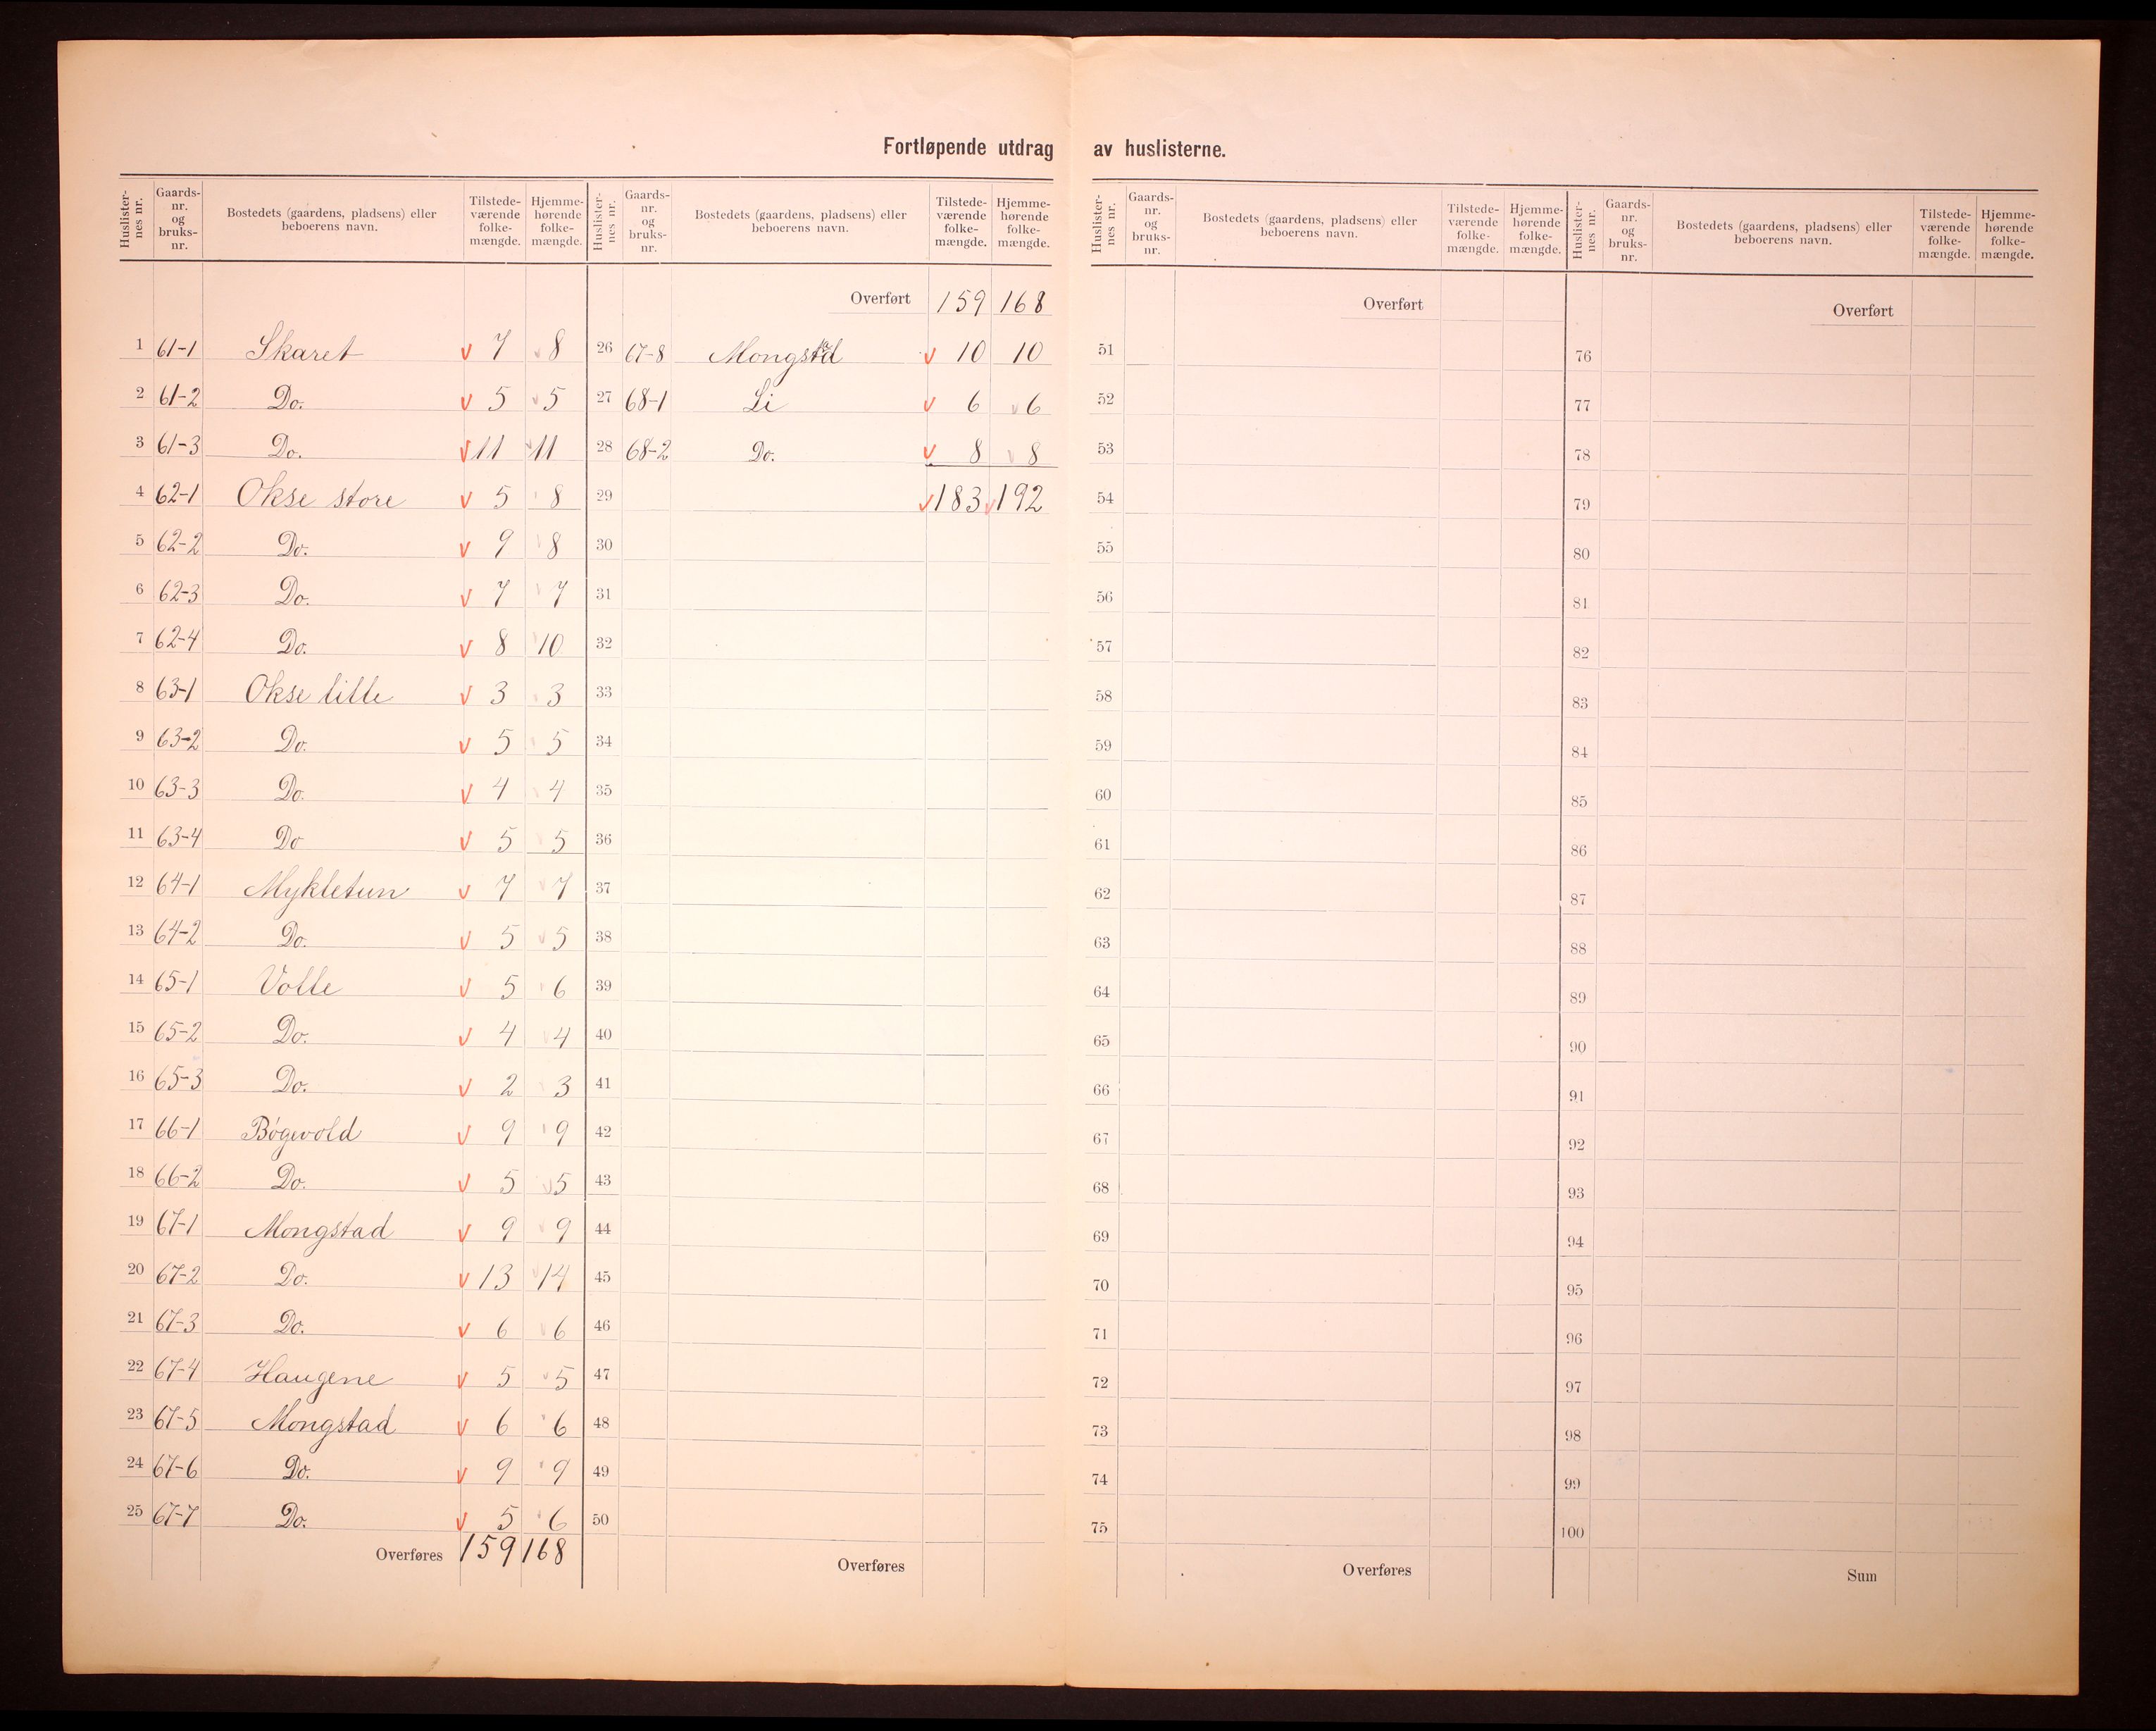 Fortløpende utdrag av huslisterne.
Huslister-nes nr. Gaards-nr. og bruks-nr. Bostedets (gaardens, pladsens) eller beboerens navn. Tilstede-værende folke-mængde. Hjemme-hørende folke-mængde.
1 61-1 Skaret v 7 v 8
2 61-2 Do. v 5 v 5
3 61-3 Do. v 11 v 11
4 62-1 Okse store v 5 8
5 62-2 Do. v 9 8
6 62-3 Do. v 7 7
7 62-4 Do. v 8 10
8 63-1 Okse lille v 3 3
9 63-2 Do. v 5 5
10 63-3 Do. v 4 4
11 63-4 Do v 5 5
12 64-1 Mykletun v 7 v 7
13 64-2 Do. v 5 v 5
14 65-1 Volle v 5 6
15 65-2 Do. v 4 v 4
16 65-3 Do. v 2 3
17 66-1 Bögevold v 9 9
18 66-2 Do. v 5 v 5
19 67-1 Mongstad v 9 v 9
20 67-2 Do. v 13 v 14
21 67-3 Do. v 6 v 6
22 67-4 Haugene v 5 v 5
23 67-5 Mongstad v 6 6
24 67-6 Do. v 9 9
25 67-7 Do. v 5 6
Overføres 159 168
Huslister-nes nr. Gaards-nr. og bruks-nr. Bostedets (gaardens, pladsens) eller beboerens navn. Tilstede-værende folke-mængde. Hjemme-hørende folke-mængde.
Overført 159 168
26 67-8 Mongstad v 10 10
27 68-1 Li v 6 v 6
28 68-2 Do. v 8 v 8
29 v 183 v 192
30
31
32
33
34
35
36
37
38
39
40
41
42
43
44
45
46
47
48
49
50
Overføres
Huslister-nes nr. Gaards-nr. og bruks-nr. Bostedets (gaardens, pladsens) eller beboerens navn. Tilstede-værende folke-mængde. Hjemme-hørende folke-mængde.
Overført
51
52
53
54
55
56
57
58
59
60
61
62
63
64
65
66
67
68
69
70
71
72
73
74
75
Overføres
Huslister-nes nr. Gaards-nr. og bruks-nr. Bostedets (gaardens, pladsens) eller beboerens navn. Tilstede-værende folke-mængde. Hjemme-hørende folke-mængde.
Overført
76
77
78
79
80
81
82
83
84
85
86
87
88
89
90
91
92
93
94
95
96
97
98
99
100
Sum